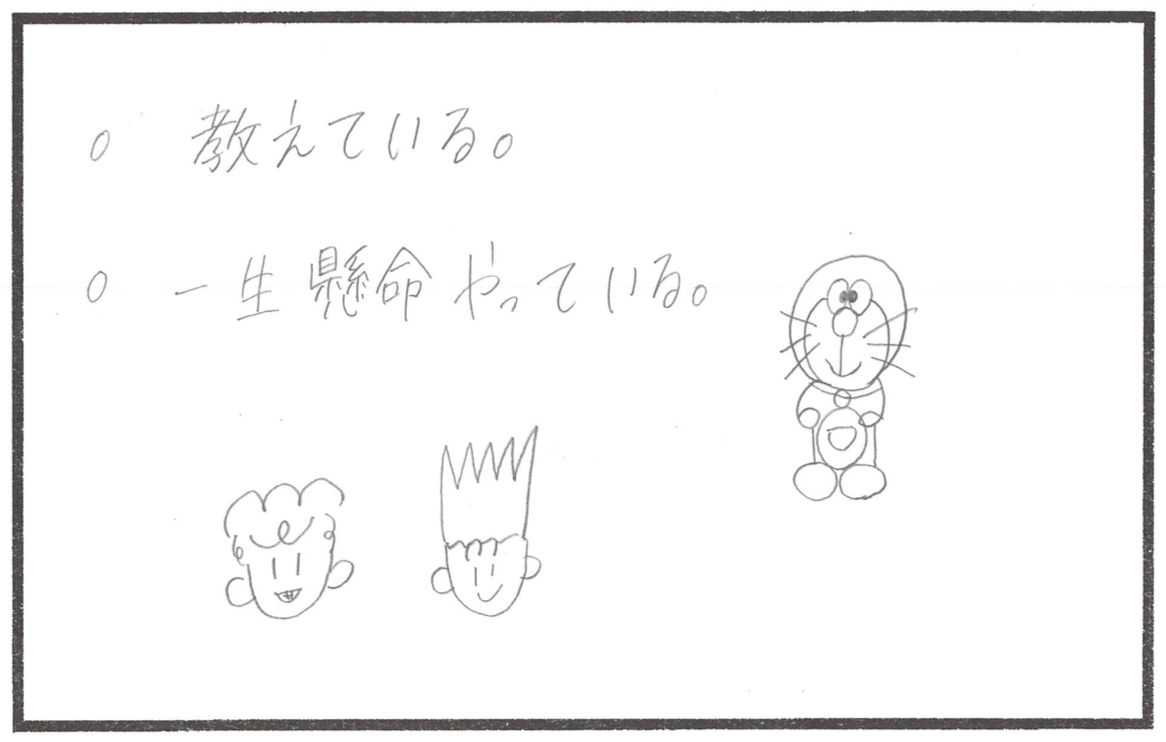 ○ 教えている。
○ 一生懸命やっている。